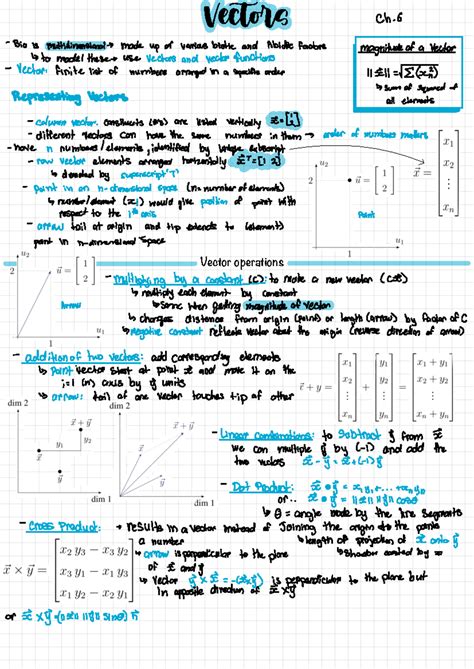 Vectors
Ch. 6
- Bio is multidimensional → made up of various biotic and Abiotic factors
↳ to model these → use vectors and vector functions
- Vector: finite list of numbers arranged in a specific order
magnitude of a Vector
↳ sum of squared of all elements
Representing Vectors
- column vector: constructs (are) listed vertically
- different vectors can have the same numbers in them → order of numbers matters
- have n numbers/elements, identified by
- row vector elements arranged horizontally
↳ denoted by superscript 'T'
- point in an n-dimensional space (n = number of elements)
↳ number/element (x1) would give position of point with respect to the 1st axis
- arrow tail at origin and tip extends to (element) point in n-dimensional space
u2
2
u = [1 2]
Point
1
u1
x = [x1 x2 ⋮ xn]
Vector operations
u2
2
u = [1 2]
Arrow
1
u1
- multiplying by a constant (c): to make a new vector (cx)
↳ multiply each element by constant
↳ same then getting magnitude of vector
↳ changes distance from origin (point) or length (arrow) by factor of C
↳ negative constant reflects vector about the origin (reverse direction of arrow)
- addition of two vectors: add corresponding elements
↳ Point vector start at point x and move it on the i=1 (n) axis by yi units
↳ arrow: tail of one vector touches tip of other
x + y = [x1 x2 ⋮ xn] + [y1 y2 ⋮ yn] = [x1 + y1 x2 + y2 ⋮ xn + yn]
dim 2
x + y
y2
y1
x
dim 1
dim 2
x + y
y
x
dim 1
- Linear Combinations: to subtract y from x we can multiply y by (-1) and add the two vectors x - y = x + (-1)y
- Dot Product: x • y = x1y1 + ... + xnyn
or.. x • y = ||x|| ||y|| cosθ
↳ θ = angle made by the line segments joining the origin to the points
↳ length of projection of x onto y
- Cross Product: → results in a vector instead of a number
↳ arrow is perpendicular to the plane of x and y
↳ Vector y × x = -(x×y) is perpendicular to the plane but in opposite direction of x×y
x × y = [x2 y3 − x3 y2 x3 y1 − x1 y3 x1 y2 − x2 y1]
or x×y = (||x|| ||y|| sinθ) n